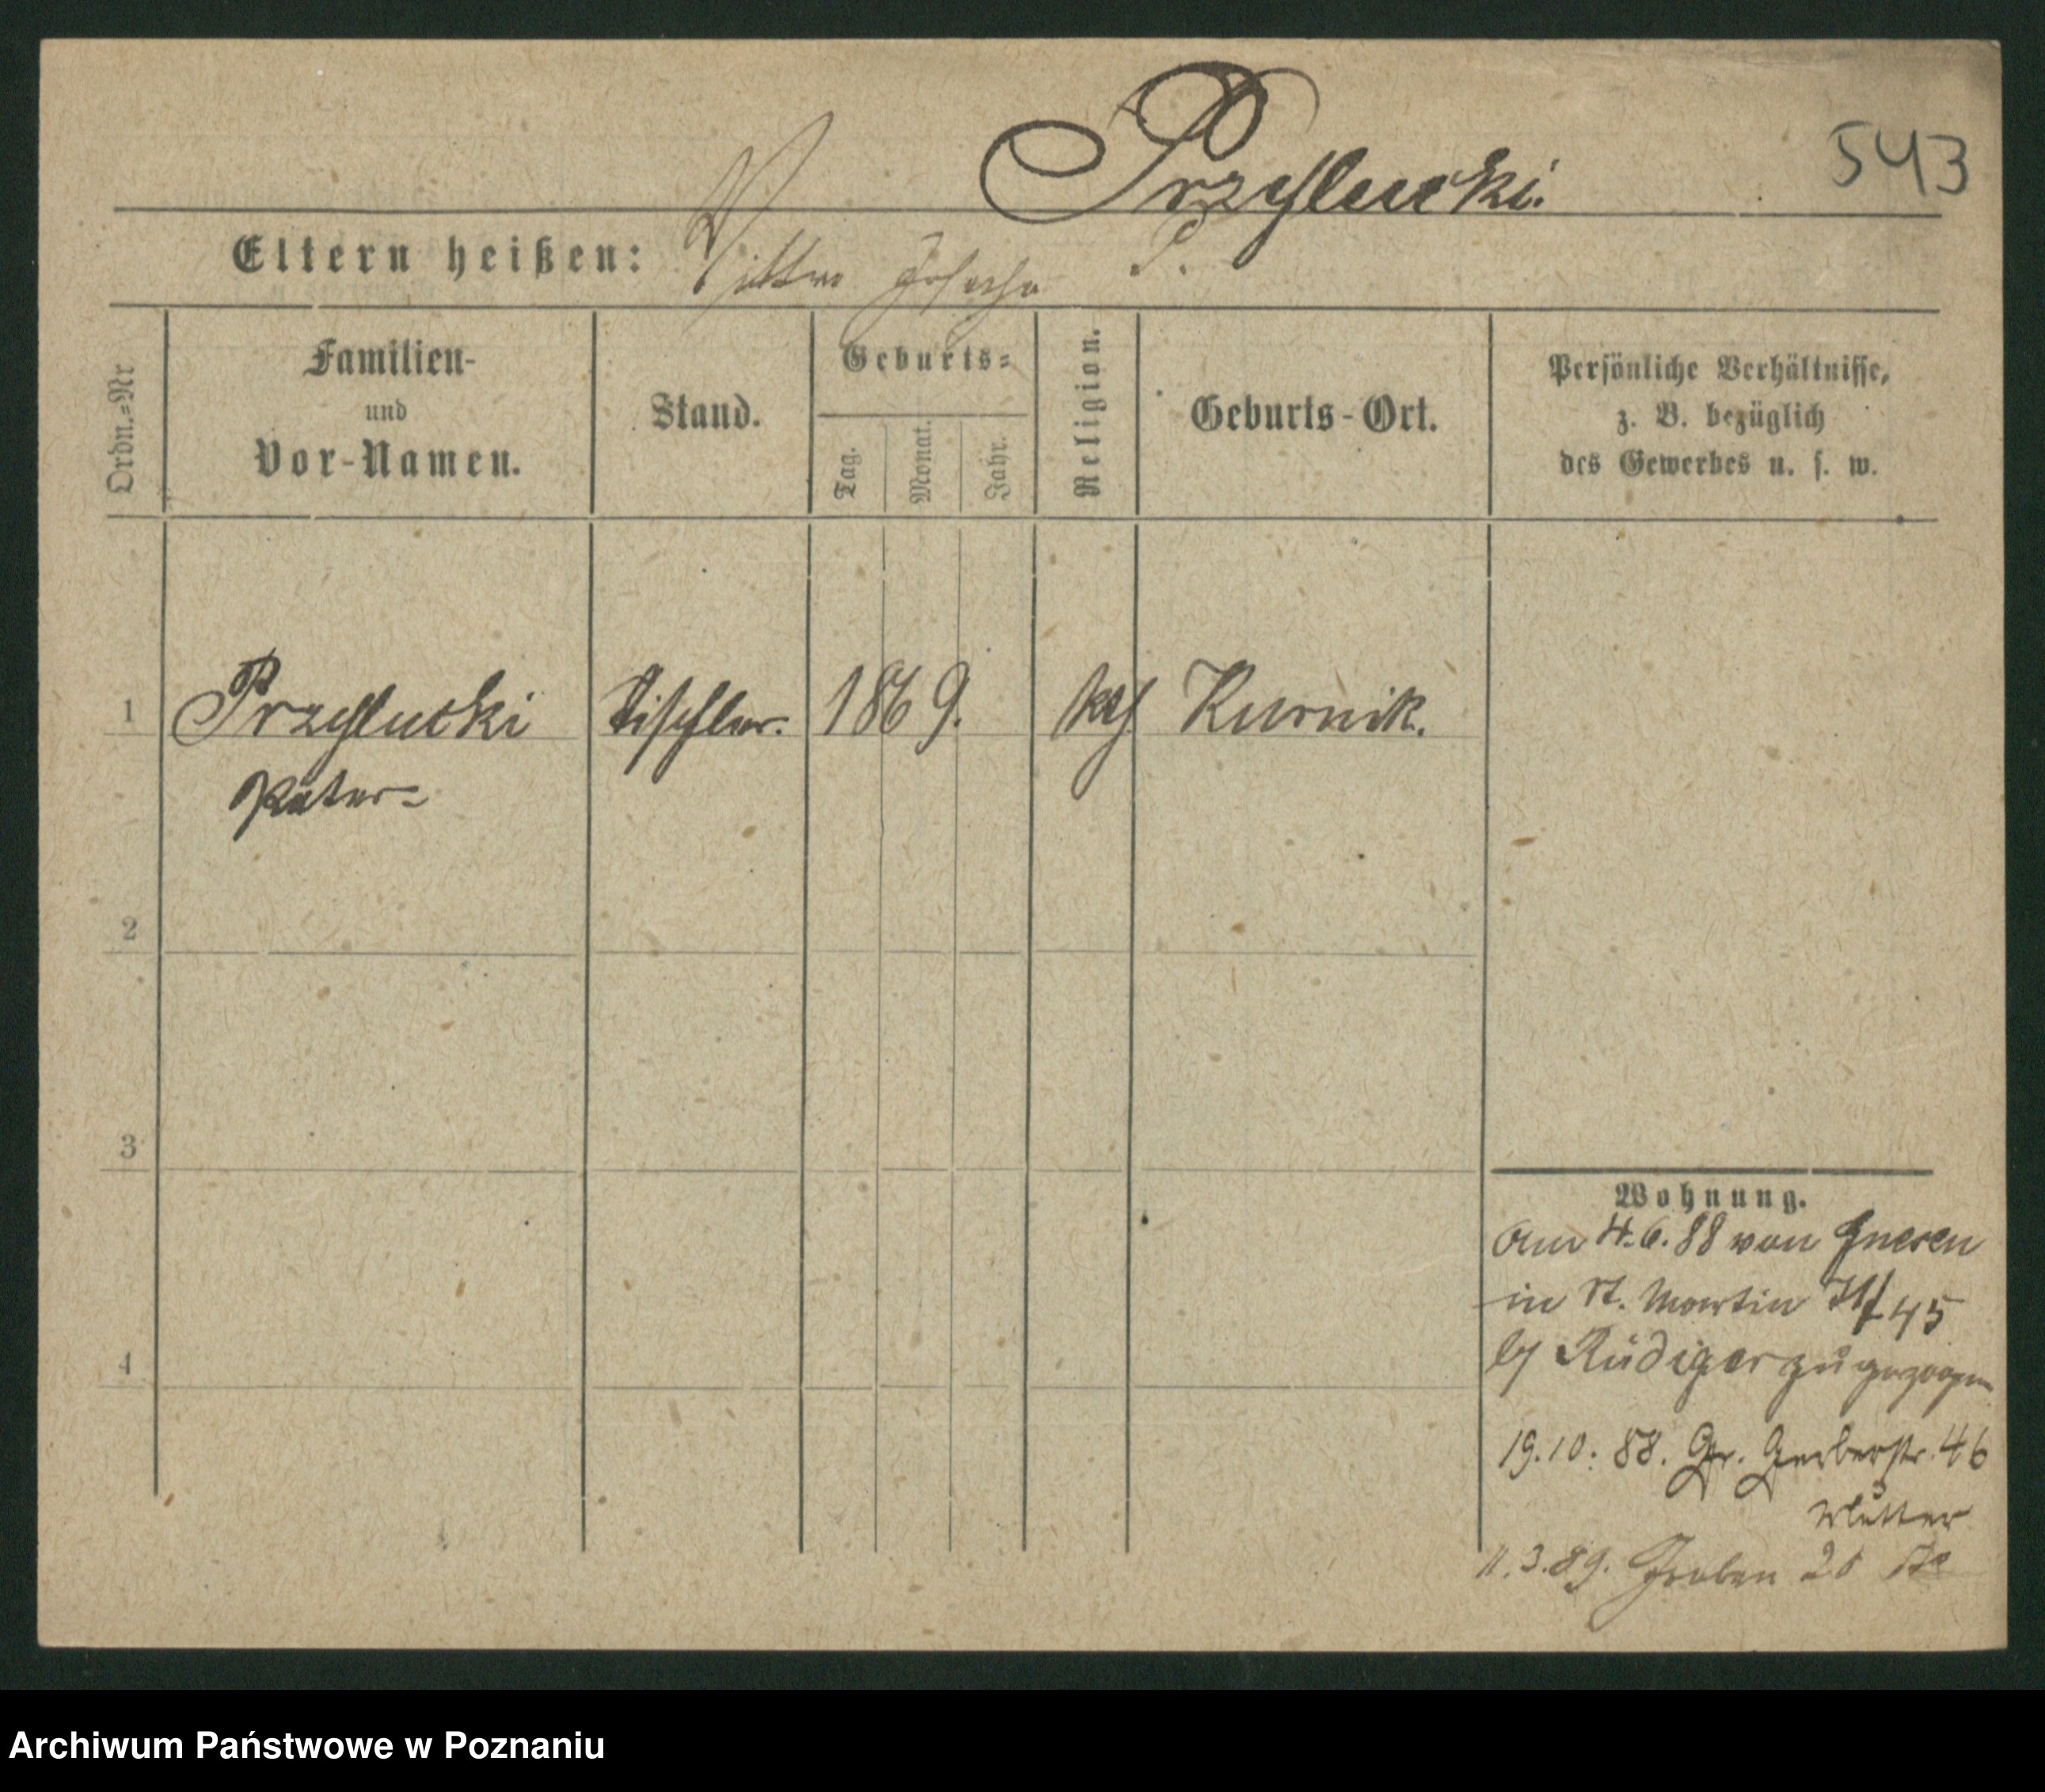 Przylucki.
543
Eltern heißen: P.
Ordn.=Nr
Familien-
und
Vor-Namen.
Stand.
Geburts=
Tag.
Monat.
Jahr.
Religion.
Geburts-Ort.
Persönliche Verhältnisse,
z. B. bezüglich
des Gewerbes u. s. w.
1 Przylucki Tischler. 1869. kth Kurnik.
Peter
2
3
4
Wohnung.
am 4.6.88 von Gnesen
in St. Martin 45
by Rüdiger zugezogen
19.10.88. Gr. Gerberstr. 46
Mutter
11.3.89. Graben 25
Archiwum Państwowe w Poznaniu